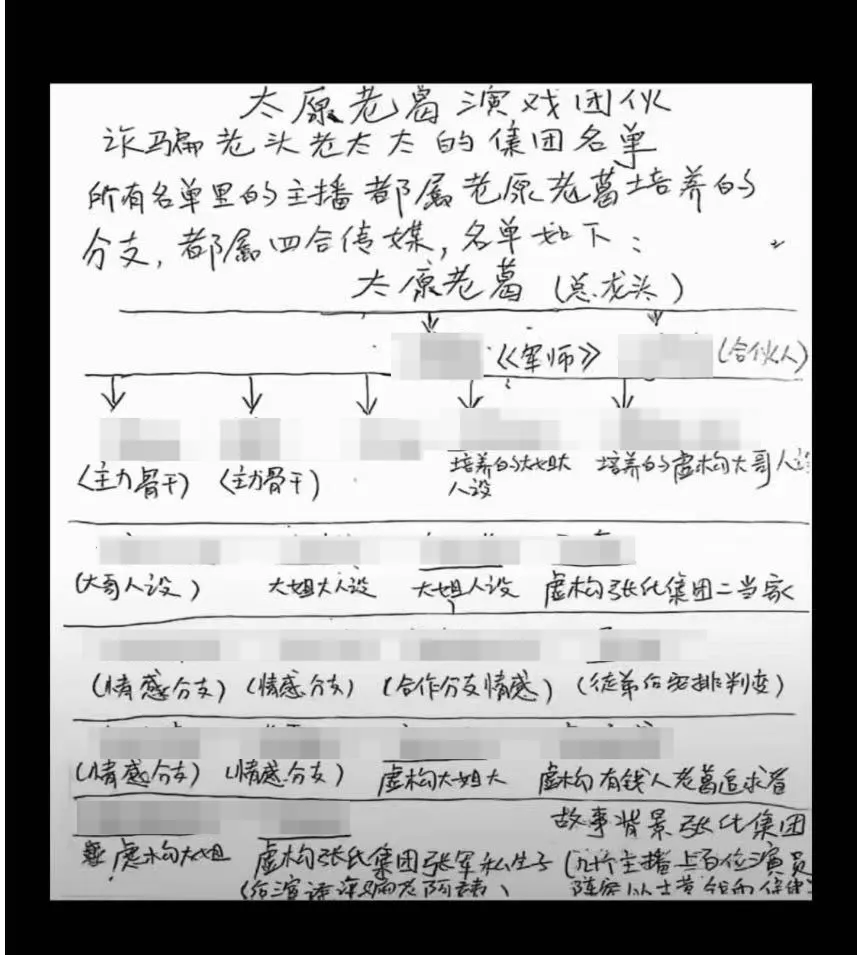 太原老葛演戏团伙
诈骗老头老太太的集团名单
所有名单里的主播都属老原老葛培养的
分支,都属四合传媒,名单如下:
太原老葛(总龙头)
《军师》 (合伙人)
(主力骨干) (主力骨干) 培养的大姐大人设 培养的虚构大哥人设
(大哥人设) 大姐大人设 大姐人设 虚构张氏集团二当家
(情感分支) (情感分支) (合作分支情感) (徒弟后安排判变)
(情感分支) (情感分支) 虚构大姐大 虚构有钱人老葛追求者
故事背景张氏集团
虚构大姐 虚构张氏集团张军私生子 (几个主播上百位演员